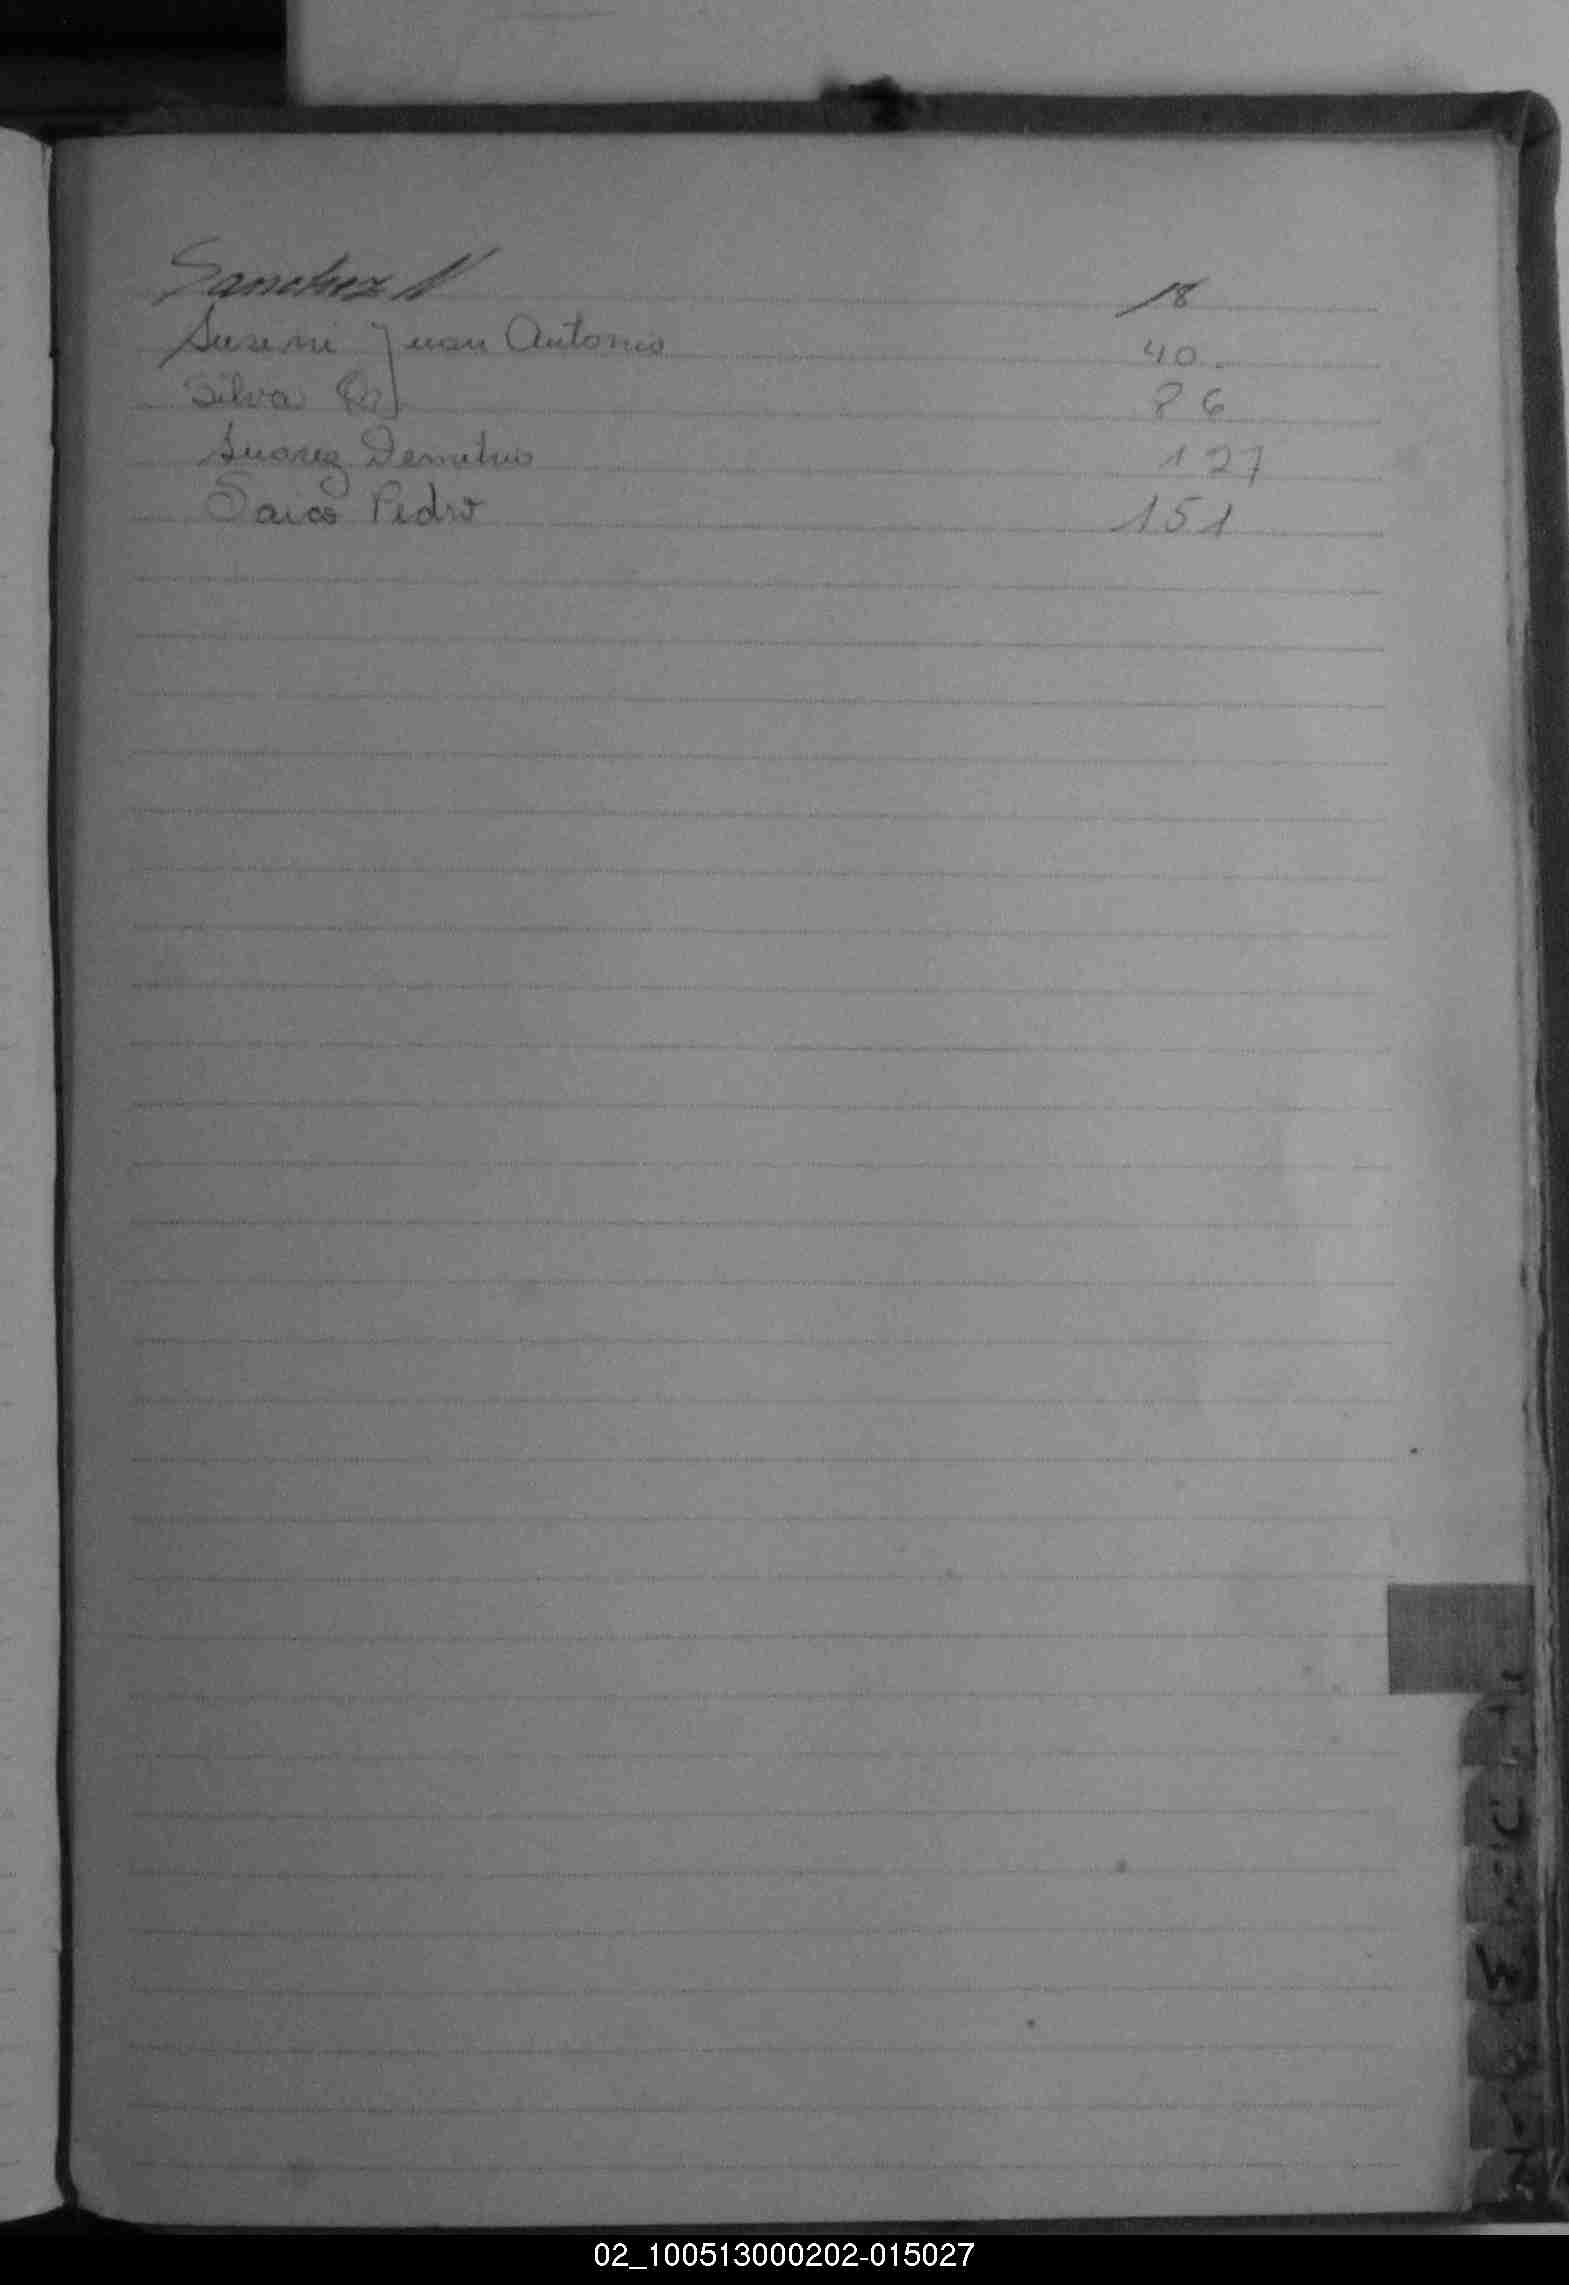 Sanchez N 18
Susini Juan Antonio 40.
Silva 86
Suarez Demetrio 127
Saico Pedro 151
U
W
Z
02_100513000202-015027